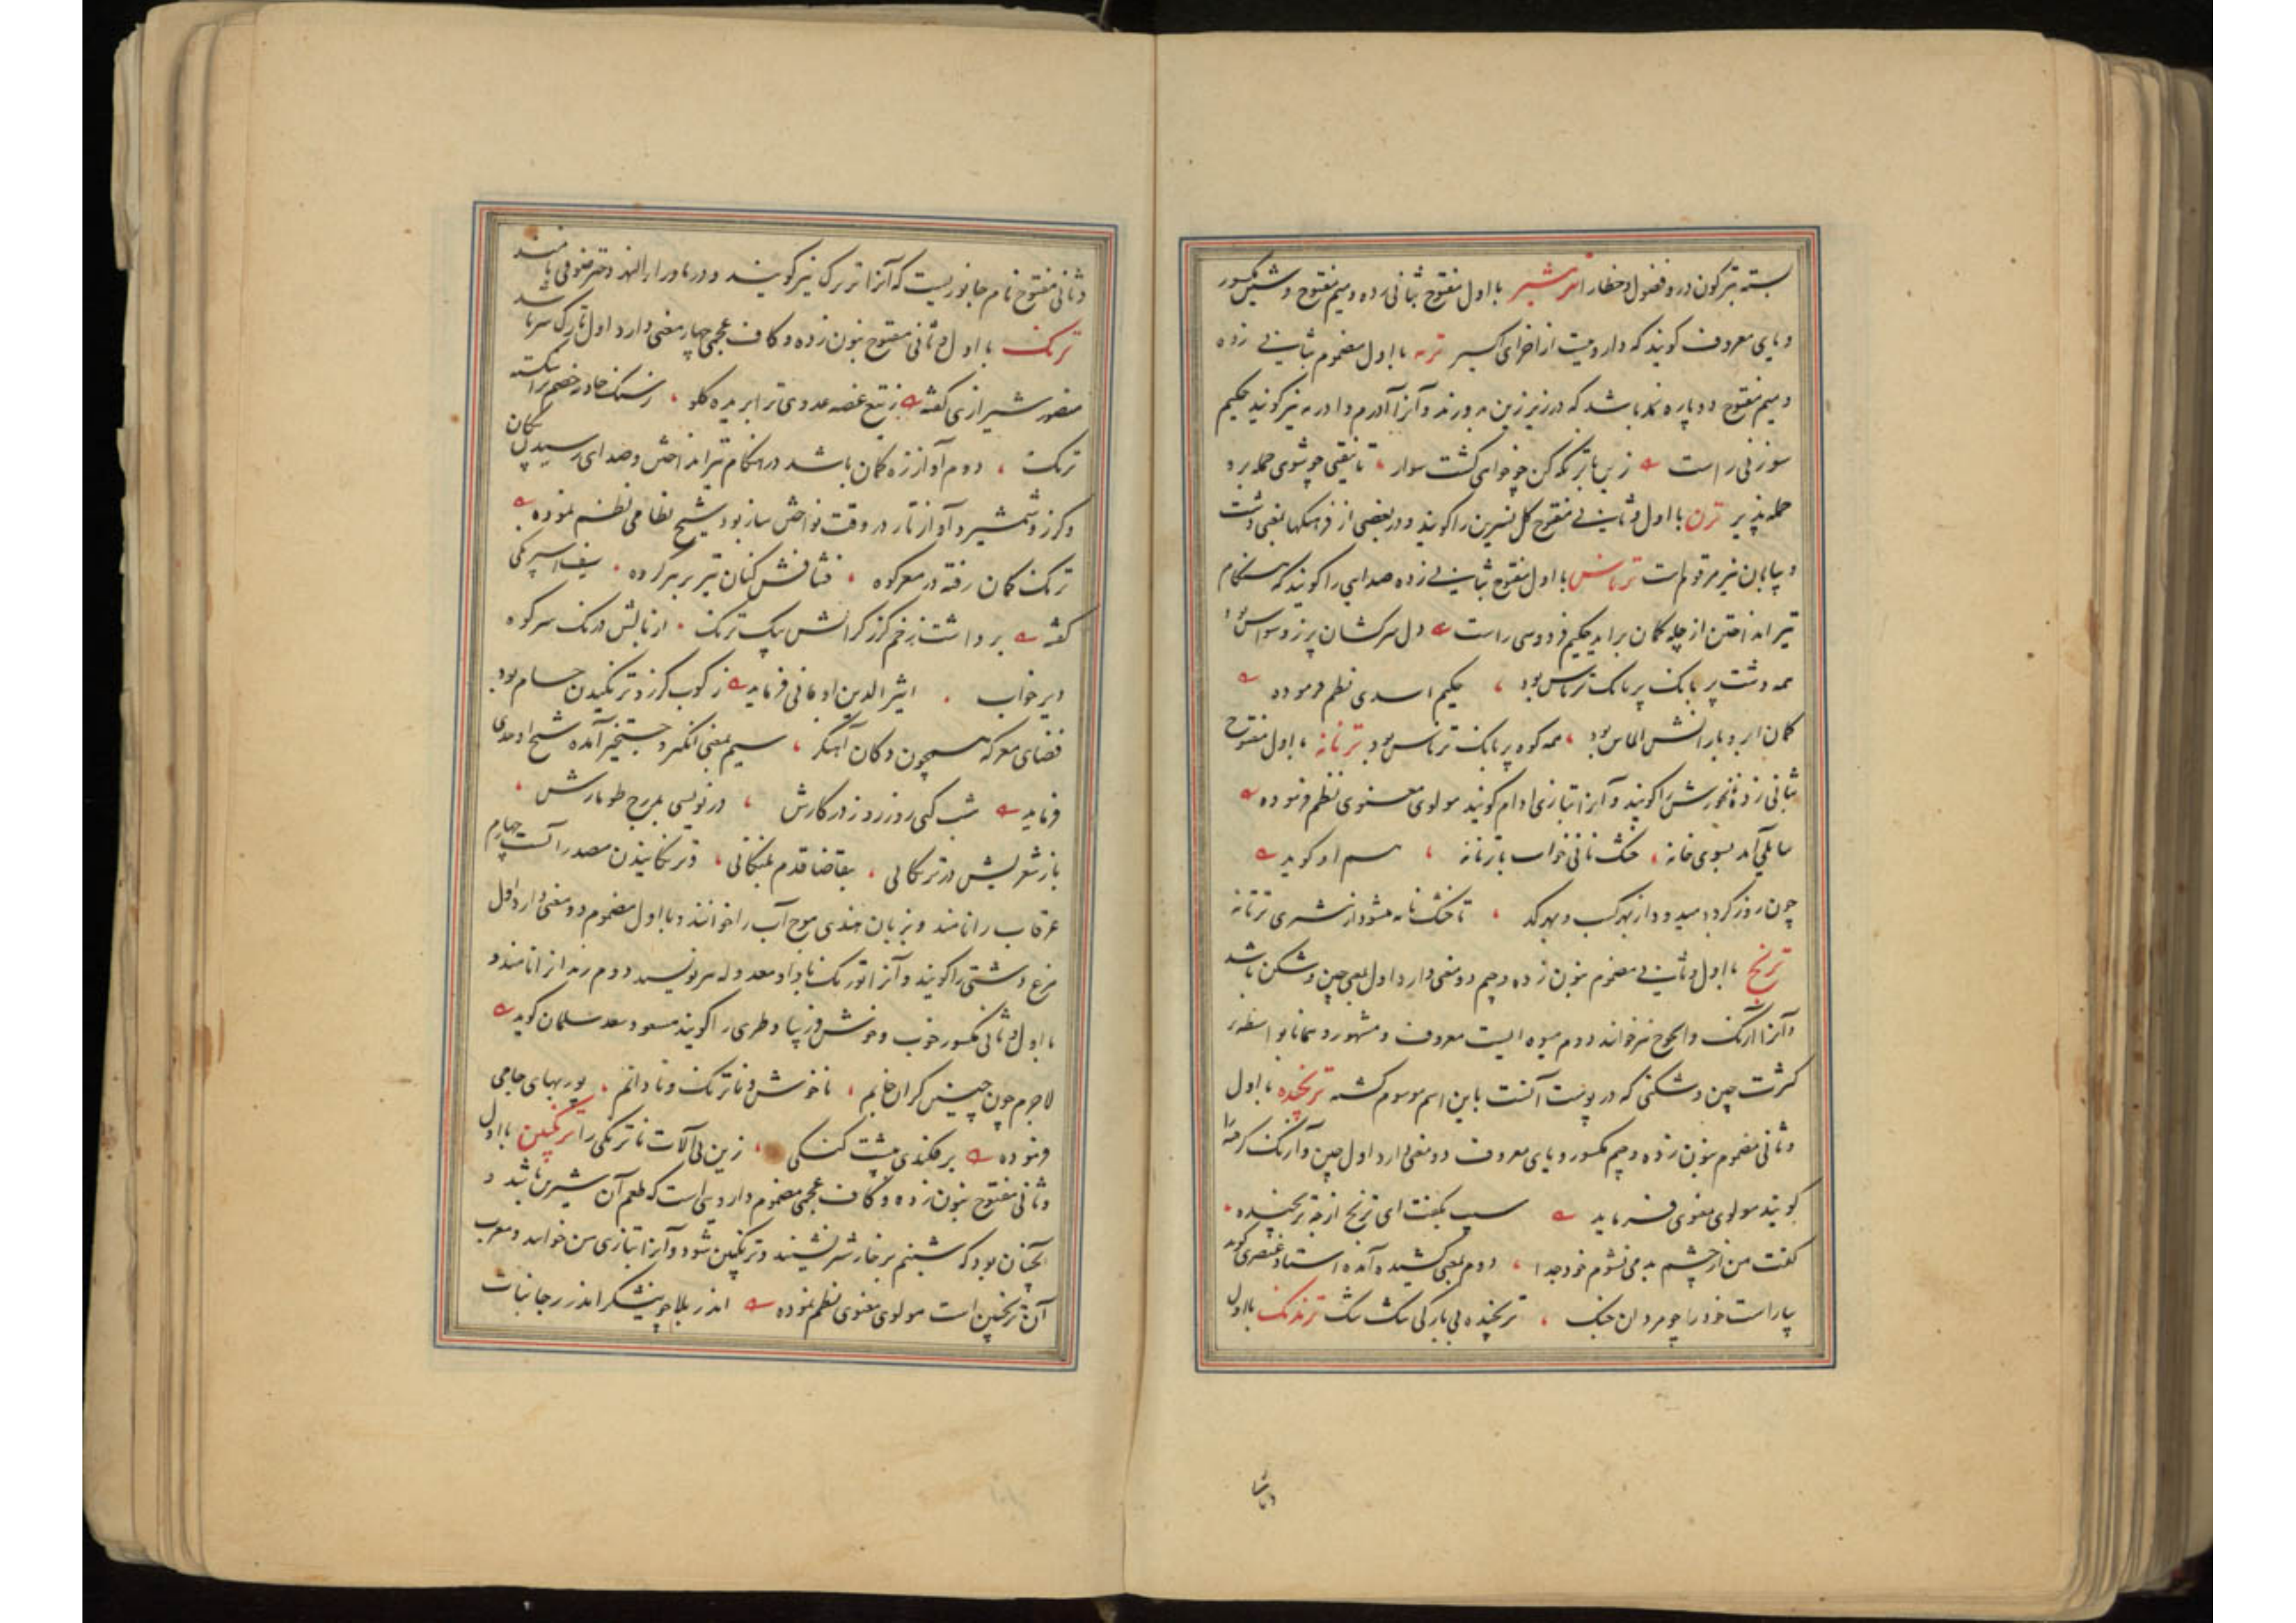 بسته تیرگون در و فضول و خطار ترمشیر با اول مفتوح بثانی زده و میم مفتوح و شین مکسور
و یای معروف گویند که داروییست از اجزای اکسیر ترمه با اول مضموم بثانی زده
و میم مفتوح دو پاره نمد باشد که در زیر زین بدوزند و آنرا آدرم و ادرمه نیز گویند حکیم
سوزنی راست زین با ترمکه کن چو خواهی گشت سوار
حمله پذیر ترن با اول و ثانی مفتوح گل نسرین را گویند و در بعضی از فرهنگها بمعنی دشت
و بیابان نیز مرقومست ترناس با اول مفتوح بثانی زده صدایی را گویند که هنگام
تیر انداختن از چله کمان براید حکیم فردوسی راست دل سرکشان پر ز وسواس بود
همه دشت پر بانک ترناس بود حکیم اسدی نظم فرموده
کمان ابر و بارانش الماس بود همه کوه پر بانک ترناس بود ترنانه با اول مفتوح
بثانی زده نانخورش را گویند و آنرا بتازی ادام گویند مولوی معنوی نظم فرموده
سایلی آمد بسوی خانه خشک نانی خواست یا ترنانه هم او گوید
چون روز گردد میدود از بهر کسب و بهر کد تا خشک نانه میشود از مشتری ترنانه
ترنج با اول و ثانی مضموم بنون زده و جیم دو معنی دارد اول بمعنی چین و شکن باشد
و آنرا آژنک و انجوخ نیز خوانند دوم میوه ایست معروف و مشهور و همانا بواسطه
کثرت چین و شکنی که در پوست آنست باین اسم موسوم گشته ترنجیده با اول
و ثانی مضموم بنون زده و جیم مکسور و یای معروف دو معنی دارد اول چین و آژنک گرفته را
گویند مولوی معنوی فرماید سیب بگفت ای ترنج از چه ترنجیده
گفت من از چشم بد می نشوم خودجدا دوم بمعنی کشیده آمده استاد عنصری گوید
بیاراست خود را چو مردان جنک ترنجیده بی بارکی تنک تنک ترندک با اول
و ثانی
و ثانی مفتوح نام جانوریست که آنرا ترترک نیز گویند و در ماوراء النهر دختر صوفی نامند
ترنک با اول و ثانی مفتوح بنون زده و کاف عجمی چهار معنی دارد اول تارک سر باشد
منصور شیرازی گفته ز تیغ غصه عدوی ترا بریده گلو ز سنک حادثه خصم ترا شکسته
ترنک دوم آواز زه کمان باشد در هنگام تیر انداختن و صدای رسیدن پیکان
و گرز و شمشیر و آواز تار در وقت نواختن ساز بود شیخ نظامی نظم نموده
ترنک کمان رفته در مغز کوه فشافش کنان تیر بر هر گروه سیف اسپرنکی
گفته برداشت زخم گرز گرانش بیک ترنک از بالش درنک سر کوه
دیر خواب اثیر الدین اومانی فرماید ز کوب گرز و ترنگیدن حسام بود
فضای معرکه همچون دکان آهنگر سیم بمعنی انگیز و جستخیز آمده شیخ اوحدی
فرماید شب کی روز زد ز در کارش در نویسی بمرح طومارش
باز شعریش در ترنگانی بتقاضا قدم بلنگانی و ترنگانیدن مصدر آنست چهارم
غرقاب را نامند و بزبان هندی موج آب را خوانند و با اول مضموم دو معنی دارد اول
مرغ دشتی را گویند و آنرا تورنک با واو معدوله هم نویسند دوم زندانرا نامند و
با اول و ثانی مکسور خوب و خوش و زیبا و طری را گویند مسعود سعد سلمان گوید
لاجرم چون چنین گران خایم ناخوش و ناترنک و نادانم پوربهای جامی
فرموده برفکندی بپشت کنکی زین بی آلات ناترنکی را ترنگبین با اول
و ثانی مفتوح بنون زده و کاف عجمی مضموم داروییست که طعم آن شیرین باشد و
آنچنان بود که شبنم بر خار شتر نشیند و ترنگبین شود و آنرا بتازی من خوانند و معرب
آن ترنجبین است مولوی معنوی نظم نموده اندر بلا چو نیشکر اندر رجا نبات